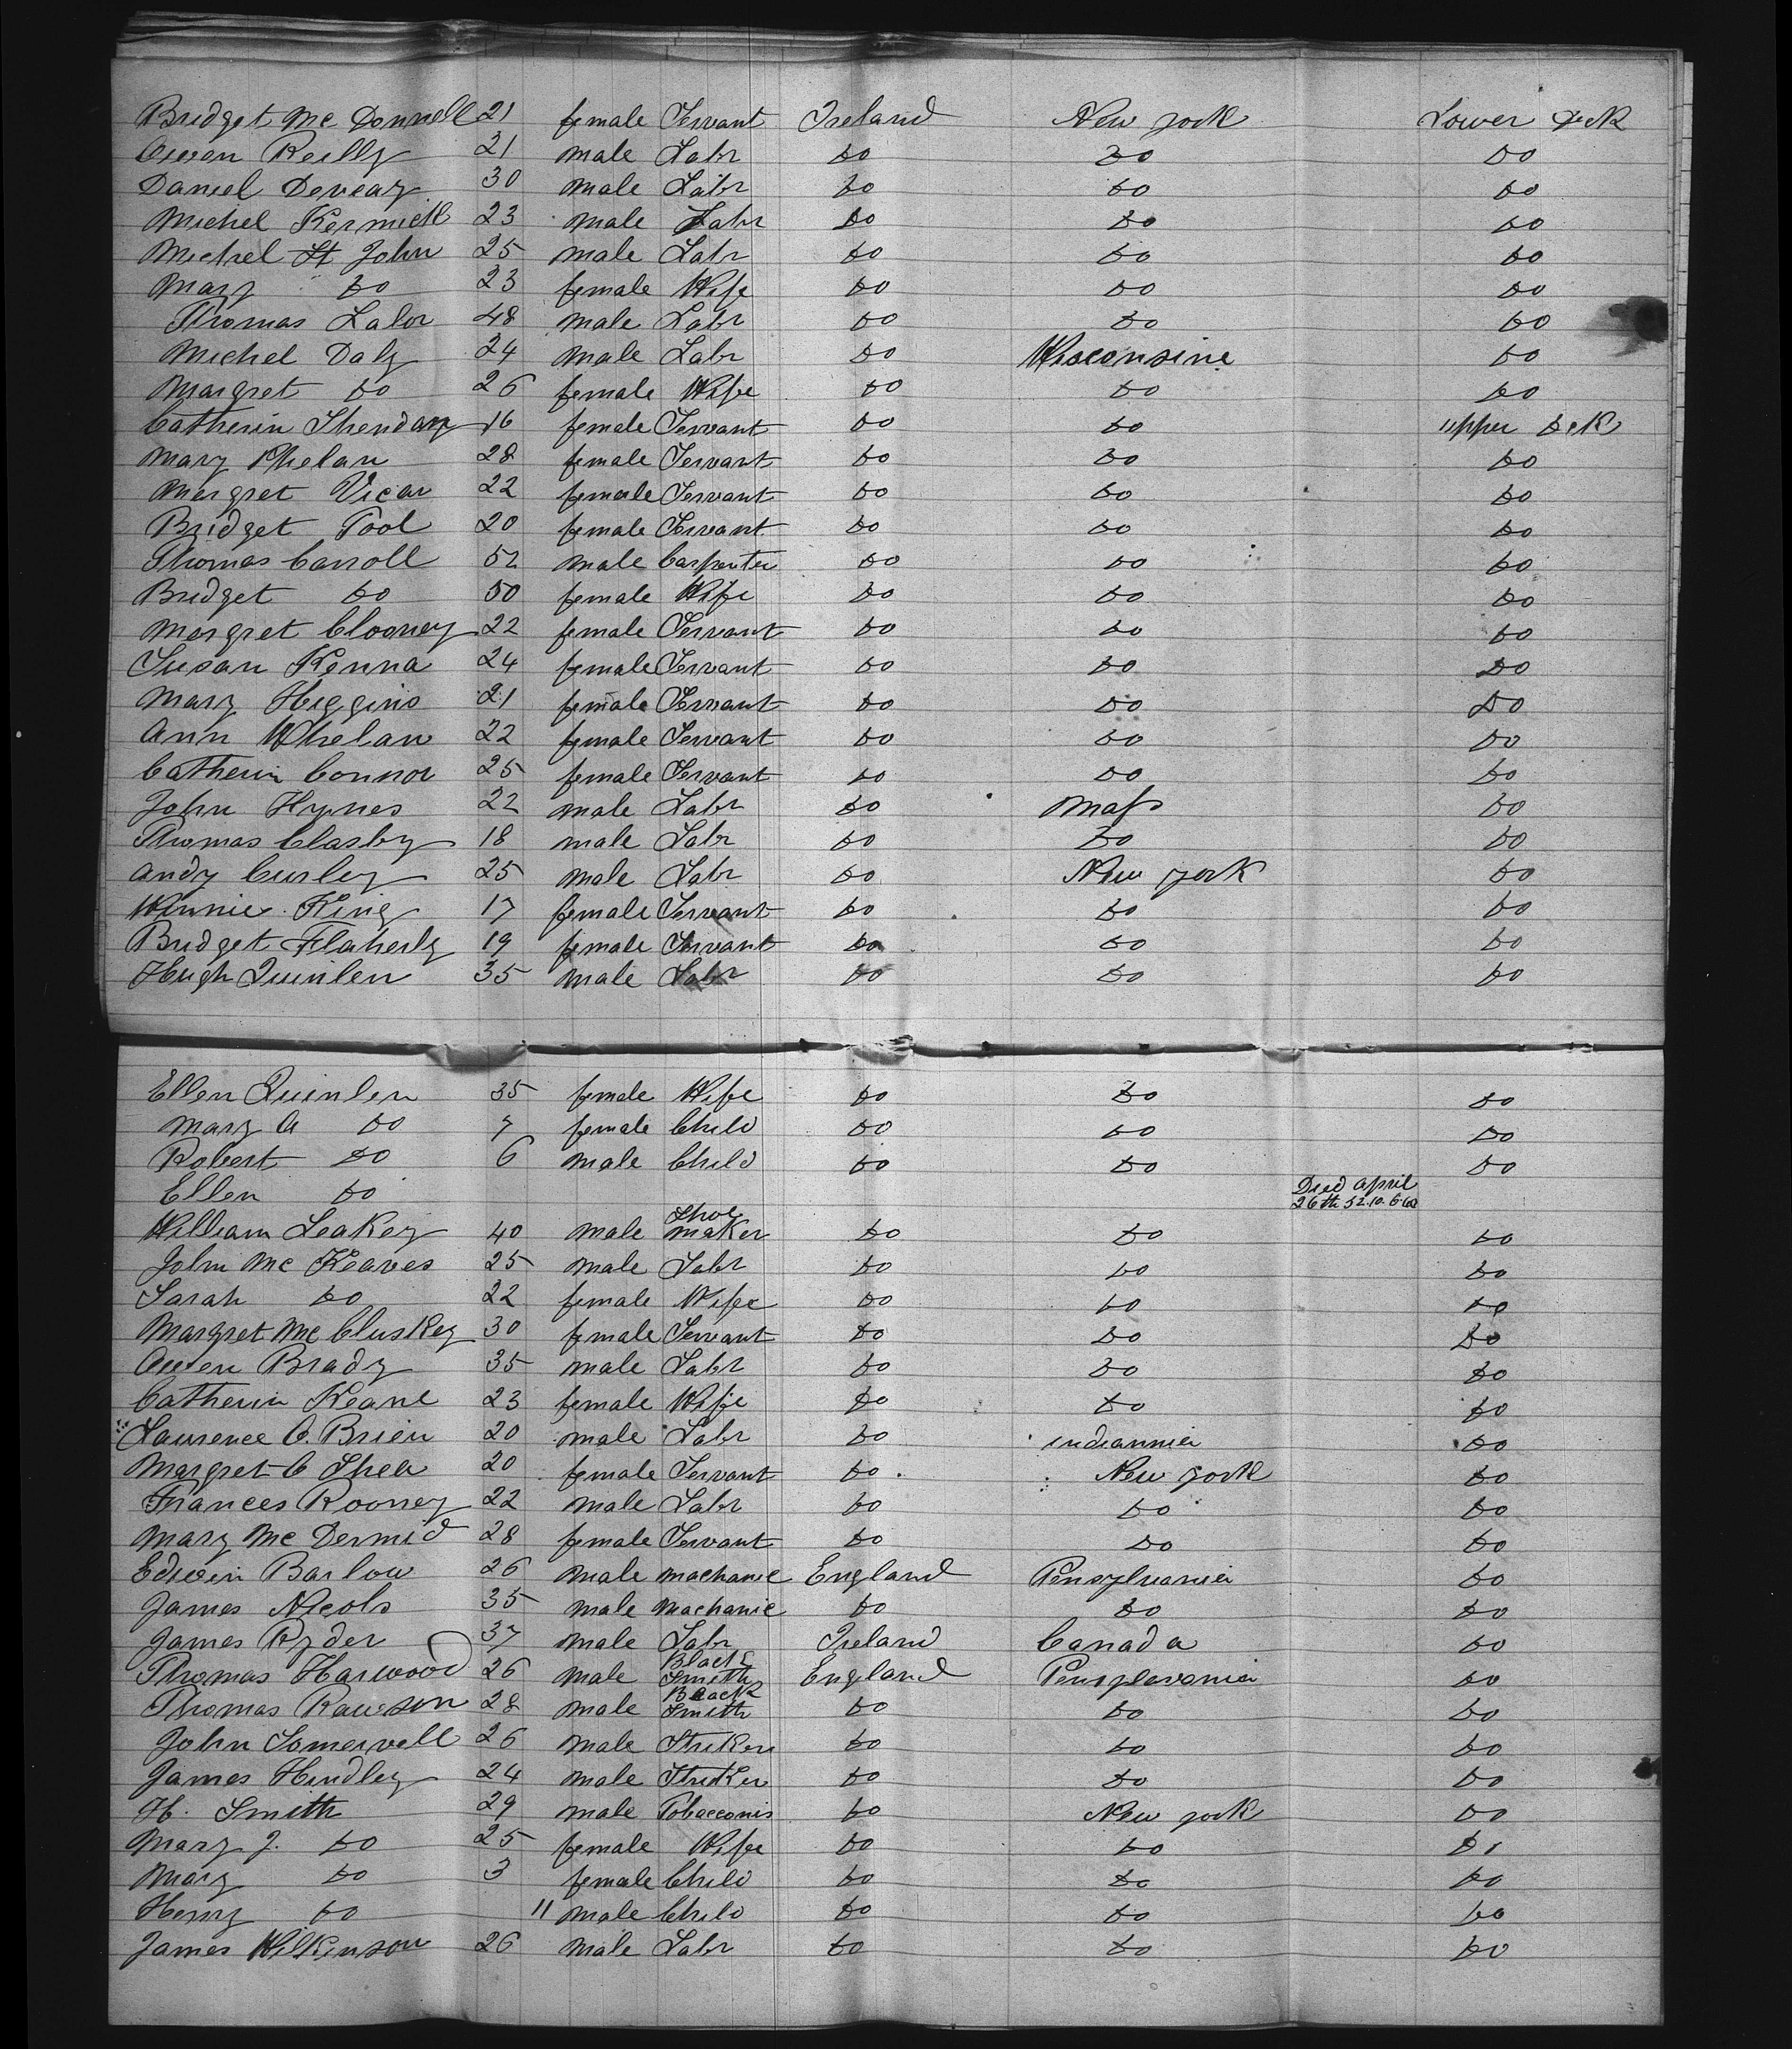 Bridget Mc Donnell 21 female Servant Ireland New york Lower Deck
Owen Reilly 21 male Labr Do Do Do
Daniel Deveay 30 male Labr Do Do Do
Michel Kermick 23 male Labr Do Do Do
Michel St John 25 male Labr Do Do Do
Mary Do 23 female Wife Do Do Do
Thomas Lalor 48 male Labr Do Do Do
Michel Daly 24 male Labr Do Wisconsine Do
Margret Do 26 female Wife Do Do Do
Catherin 16 female Servant Do Do upper Deck
Mary Phelan 28 female Servant Do Do Do
Margret Vicar 22 female Servant Do Do Do
Bridget Tool 20 female Servant Do Do Do
Thomas Carroll 52 male Carpenter Do Do Do
Bridget Do 50 female Wife Do Do Do
Margret Clooney 22 female Servant Do Do Do
Susan Kenna 24 female Servant Do Do Do
Mary Higgins 21 female Servant Do Do Do
Ann Whelan 22 female Servant Do Do Do
Catherin Connor 25 female Servant Do Do Do
John Hynes 22 male Labr Do Mass Do
Thomas Clasby 18 male Labr Do Do Do
Andy Curley 25 male Labr Do New york Do
Winnie King 17 female Servant Do Do Do
Bridget Flaherty 19 female Servant Do Do Do
Hugh Quinlen 35 male Labr Do Do Do
Ellen Quinlen 35 female Wife Do Do Do
Mary A Do 7 female Child Do Do Do
Robert Do 6 male Child Do Do Do
Ellen Do Died April
26th
William Leakey 40 male Shoe maker Do Do Do
John Mc Keaves 25 male Labr Do Do Do
Sarah Do 22 female Wife Do Do Do
Margret Mc Cluskey 30 female Servant Do Do Do
Owen Brady 35 male Labr Do Do Do
Catherin Keane 23 female Wife Do Do Do
Laurence O. Brien 20 male Labr Do indiannia Do
Margret O Shea 20 female Servant Do New york Do
Frances Rooney 22 male Labr Do Do Do
Mary Mc Dermid 28 female Servant Do Do Do
Edwin Barlow 26 male machanic England Pensylvania Do
James Nicols 35 male Machanic Do Do Do
James Ryder 37 male Labr Ireland Canada Do
Thomas Harwood 26 male Black Smith England Pensylavania Do
Thomas Rawson 28 male Black Smith Do Do Do
John Somervell 26 male Striker Do Do Do
James Hindley 24 male Striker Do Do Do
H. Smith 29 male Tobacconis Do New york Do
Mary J. Do 25 female Wife Do Do Do
Mary Do 3 female Child Do Do Do
Henry Do 11 male Child Do Do Do
James Wilkinson 26 male Labr Do Do Do